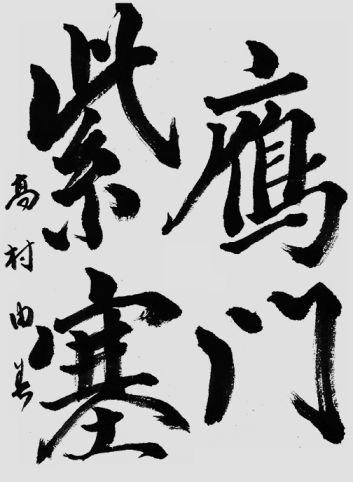 鴈門
紫塞
高村由美